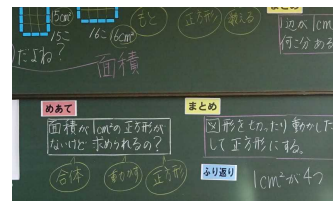 15cm²
15こ
16こ 16cm²
もと
正方形
数える
まとめ
1辺が1cm
何こ分ある
だよね?
面積
めあて
面積が1cm²の正方形が
ないけど求められるの?
合体
動かす
正方形
まとめ
図形を切ったり動かした
して正方形にする。
ふり返り
1cm²が4つ